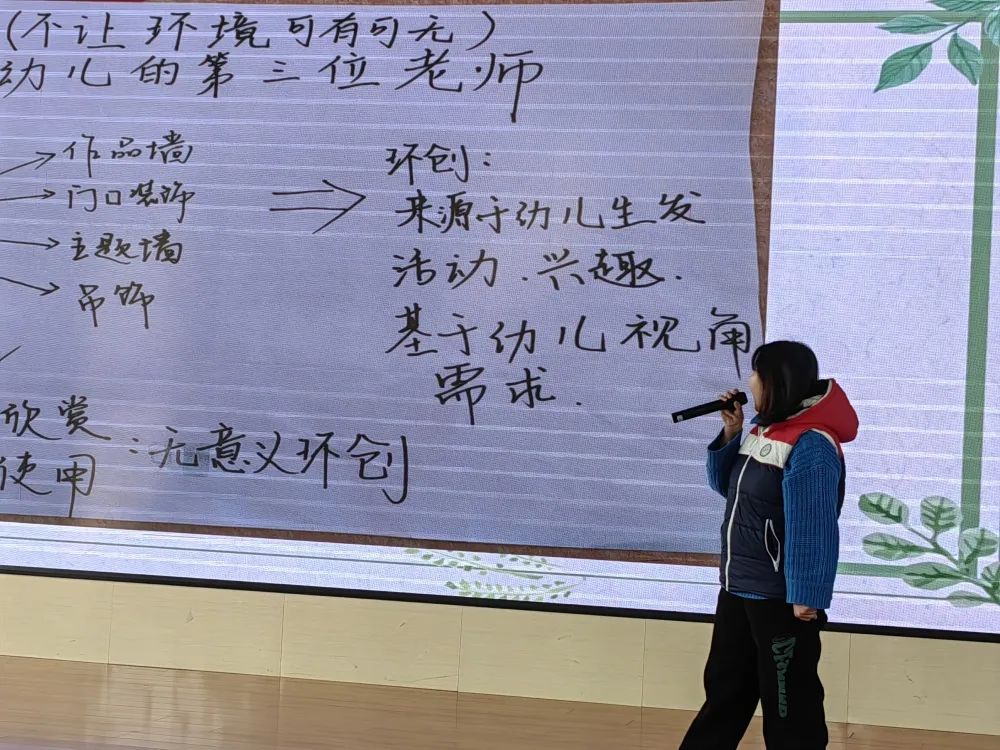 (不让环境可有可无)
幼儿的第三位老师
作品墙
门口装饰
主题墙
吊饰
环创:
来源于幼儿生发
活动.兴趣.
基于幼儿视角
需求.
欣赏
使用
:无意义环创